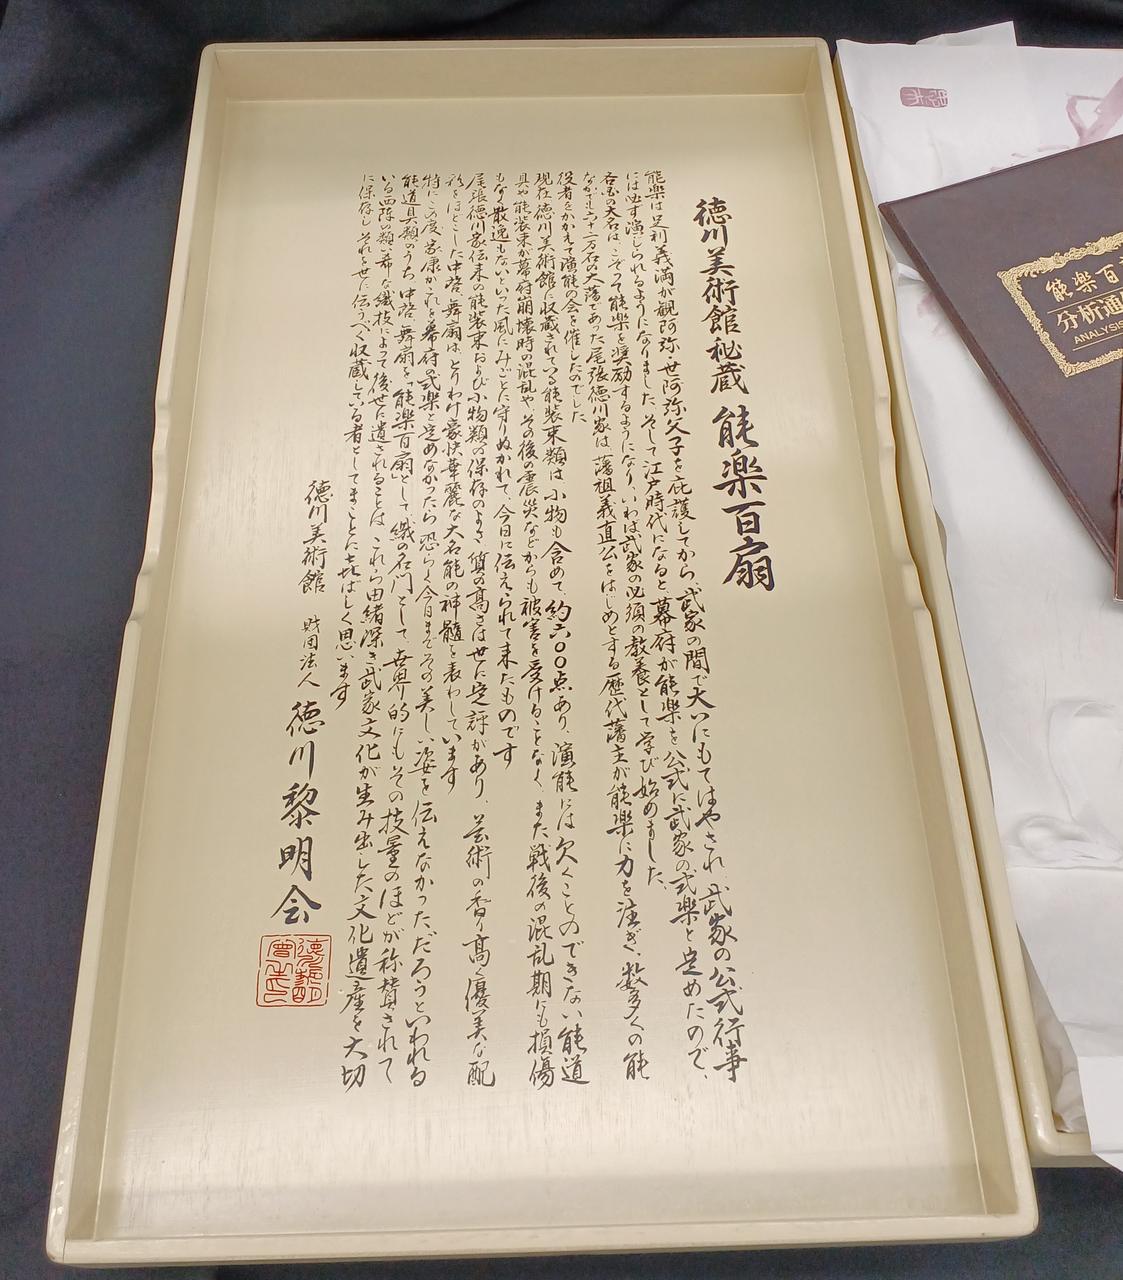 徳川美術館秘蔵 能楽百扇
能楽は足利義満が観阿弥・世阿弥父子を庇護してから、武家の間で大いにもてはやされ、武家の公式行事
には必ず演じられるようになりました。そして江戸時代になると、幕府が能楽を公式に武家の式楽と定めたので、
各国の大名は、こぞって能楽を奨励するようになり、いわば武家の必須の教養として学び始めました。
なかでも六十二万石の大藩であった尾張徳川家は、藩祖義直公をはじめとする歴代藩主が能楽に力を注ぎ、数多くの能
役者をかかえて演能の会を催したのでした。
現在、徳川美術館に収蔵されている能装束類は、小物も含めて、約六〇〇点あり、演能には欠くことのできない能道
具や能装束が幕府崩壊時の混乱や、その後の震災などからも被害を受けることなく、また戦後の混乱期にも損傷
もなく散逸もないといった風にみごとに守りぬかれて、今日に伝えられて来たものです
尾張徳川家伝来の能装束および小物類の保存のよさ、質の高さは世に定評があり、芸術の香り高く優美な配
色をほどこした中啓、舞扇は、とりわけ豪快華麗な大名能の神髄を表わしています
特にこの度、家康がこれを幕府の式楽と定めなかったら恐らく今日までその美しい姿を伝えなかっただろうといわれる
能道具類のうち、中啓、舞扇を「能楽百扇」として、織の名門として、世界的にもその技量のほどが称賛されて
いる の類い希な織技によって後世に遺されることは、これら由緒深き武家文化が生み出した文化遺産を大切
に保存し、それを世に伝うべく収蔵している者としてまことに喜ばしく思います
徳川美術館 財団法人 徳川黎明会
能楽百
分析通
ANALYSIS